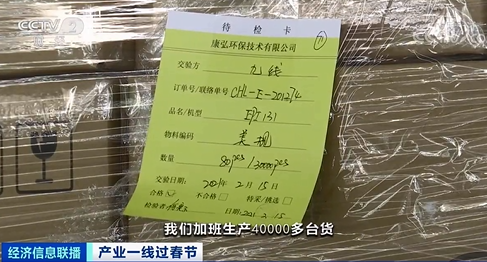 CCTV 2
待检卡
康弘环保技术有限公司
交验方 九线
订单号/联络单号 CHL-E-201274
品名/机型 EPI 131
物料编码 美规
数量 80pcs / 30000pcs
交验日期: 2021年2月15日
合格 不合格 特采/挑选
检验者: 日期: 2021.2.15
我们加班生产40000多台货
经济信息联播 产业一线过春节